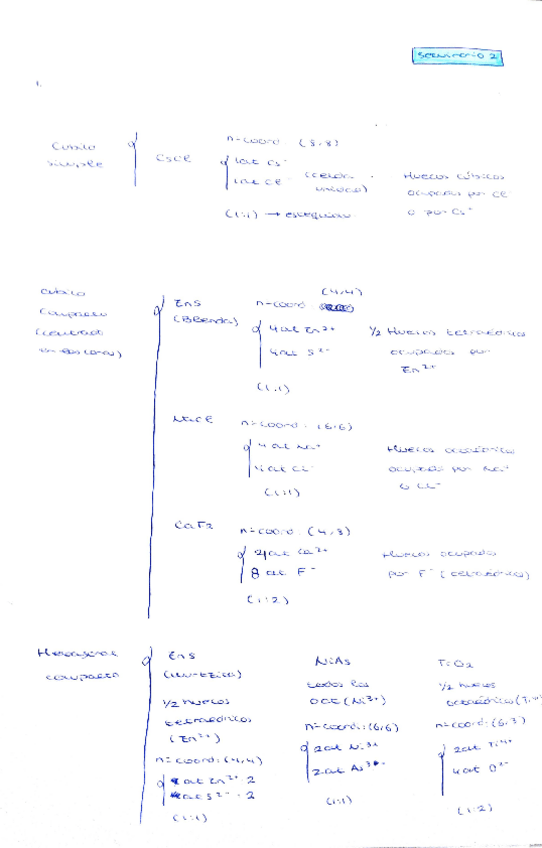 Seminario 2
1.
Cúbico simple
CsCl
nº coord: (8,8)
1 at Cs⁺
1 at Cl⁻ (celda unidad)
(1:1) → estequiom.
Huecos cúbicos
ocupados por Cl⁻
o por Cs⁺
Cúbico
Compacto
(centrado
en las caras)
ZnS
(Blenda)
nº coord (4,4)
4 at Zn²⁺
4 at S²⁻
(1:1)
1/2 Huecos tetraédricos
ocupados por
Zn²⁺
NaCl
nº coord: (6,6)
4 at Na⁺
4 at Cl⁻
(1:1)
Huecos octaédricos
ocupados por Na⁺
o Cl⁻
CaF2
nº coord: (4,8)
4 at Ca²⁺
8 at F⁻
(1:2)
Huecos ocupados
por F⁻ (tetraédrico)
Hexagonal
compacto
ZnS
(Wurtzita)
1/2 huecos
tetraédricos
(Zn²⁺)
nº coord: (4,4)
at Zn²⁺ 2
at S²⁻ 2
(1:1)
NiAs
todos los
OCT (Ni³⁺)
nº coord: (6,6)
2 at Ni³⁺
2 at As³⁻
(1:1)
TiO2
1/2 huecos
octaédricos (Ti⁴⁺)
nº coord: (6,3)
2 at Ti⁴⁺
4 at O²⁻
(1:2)